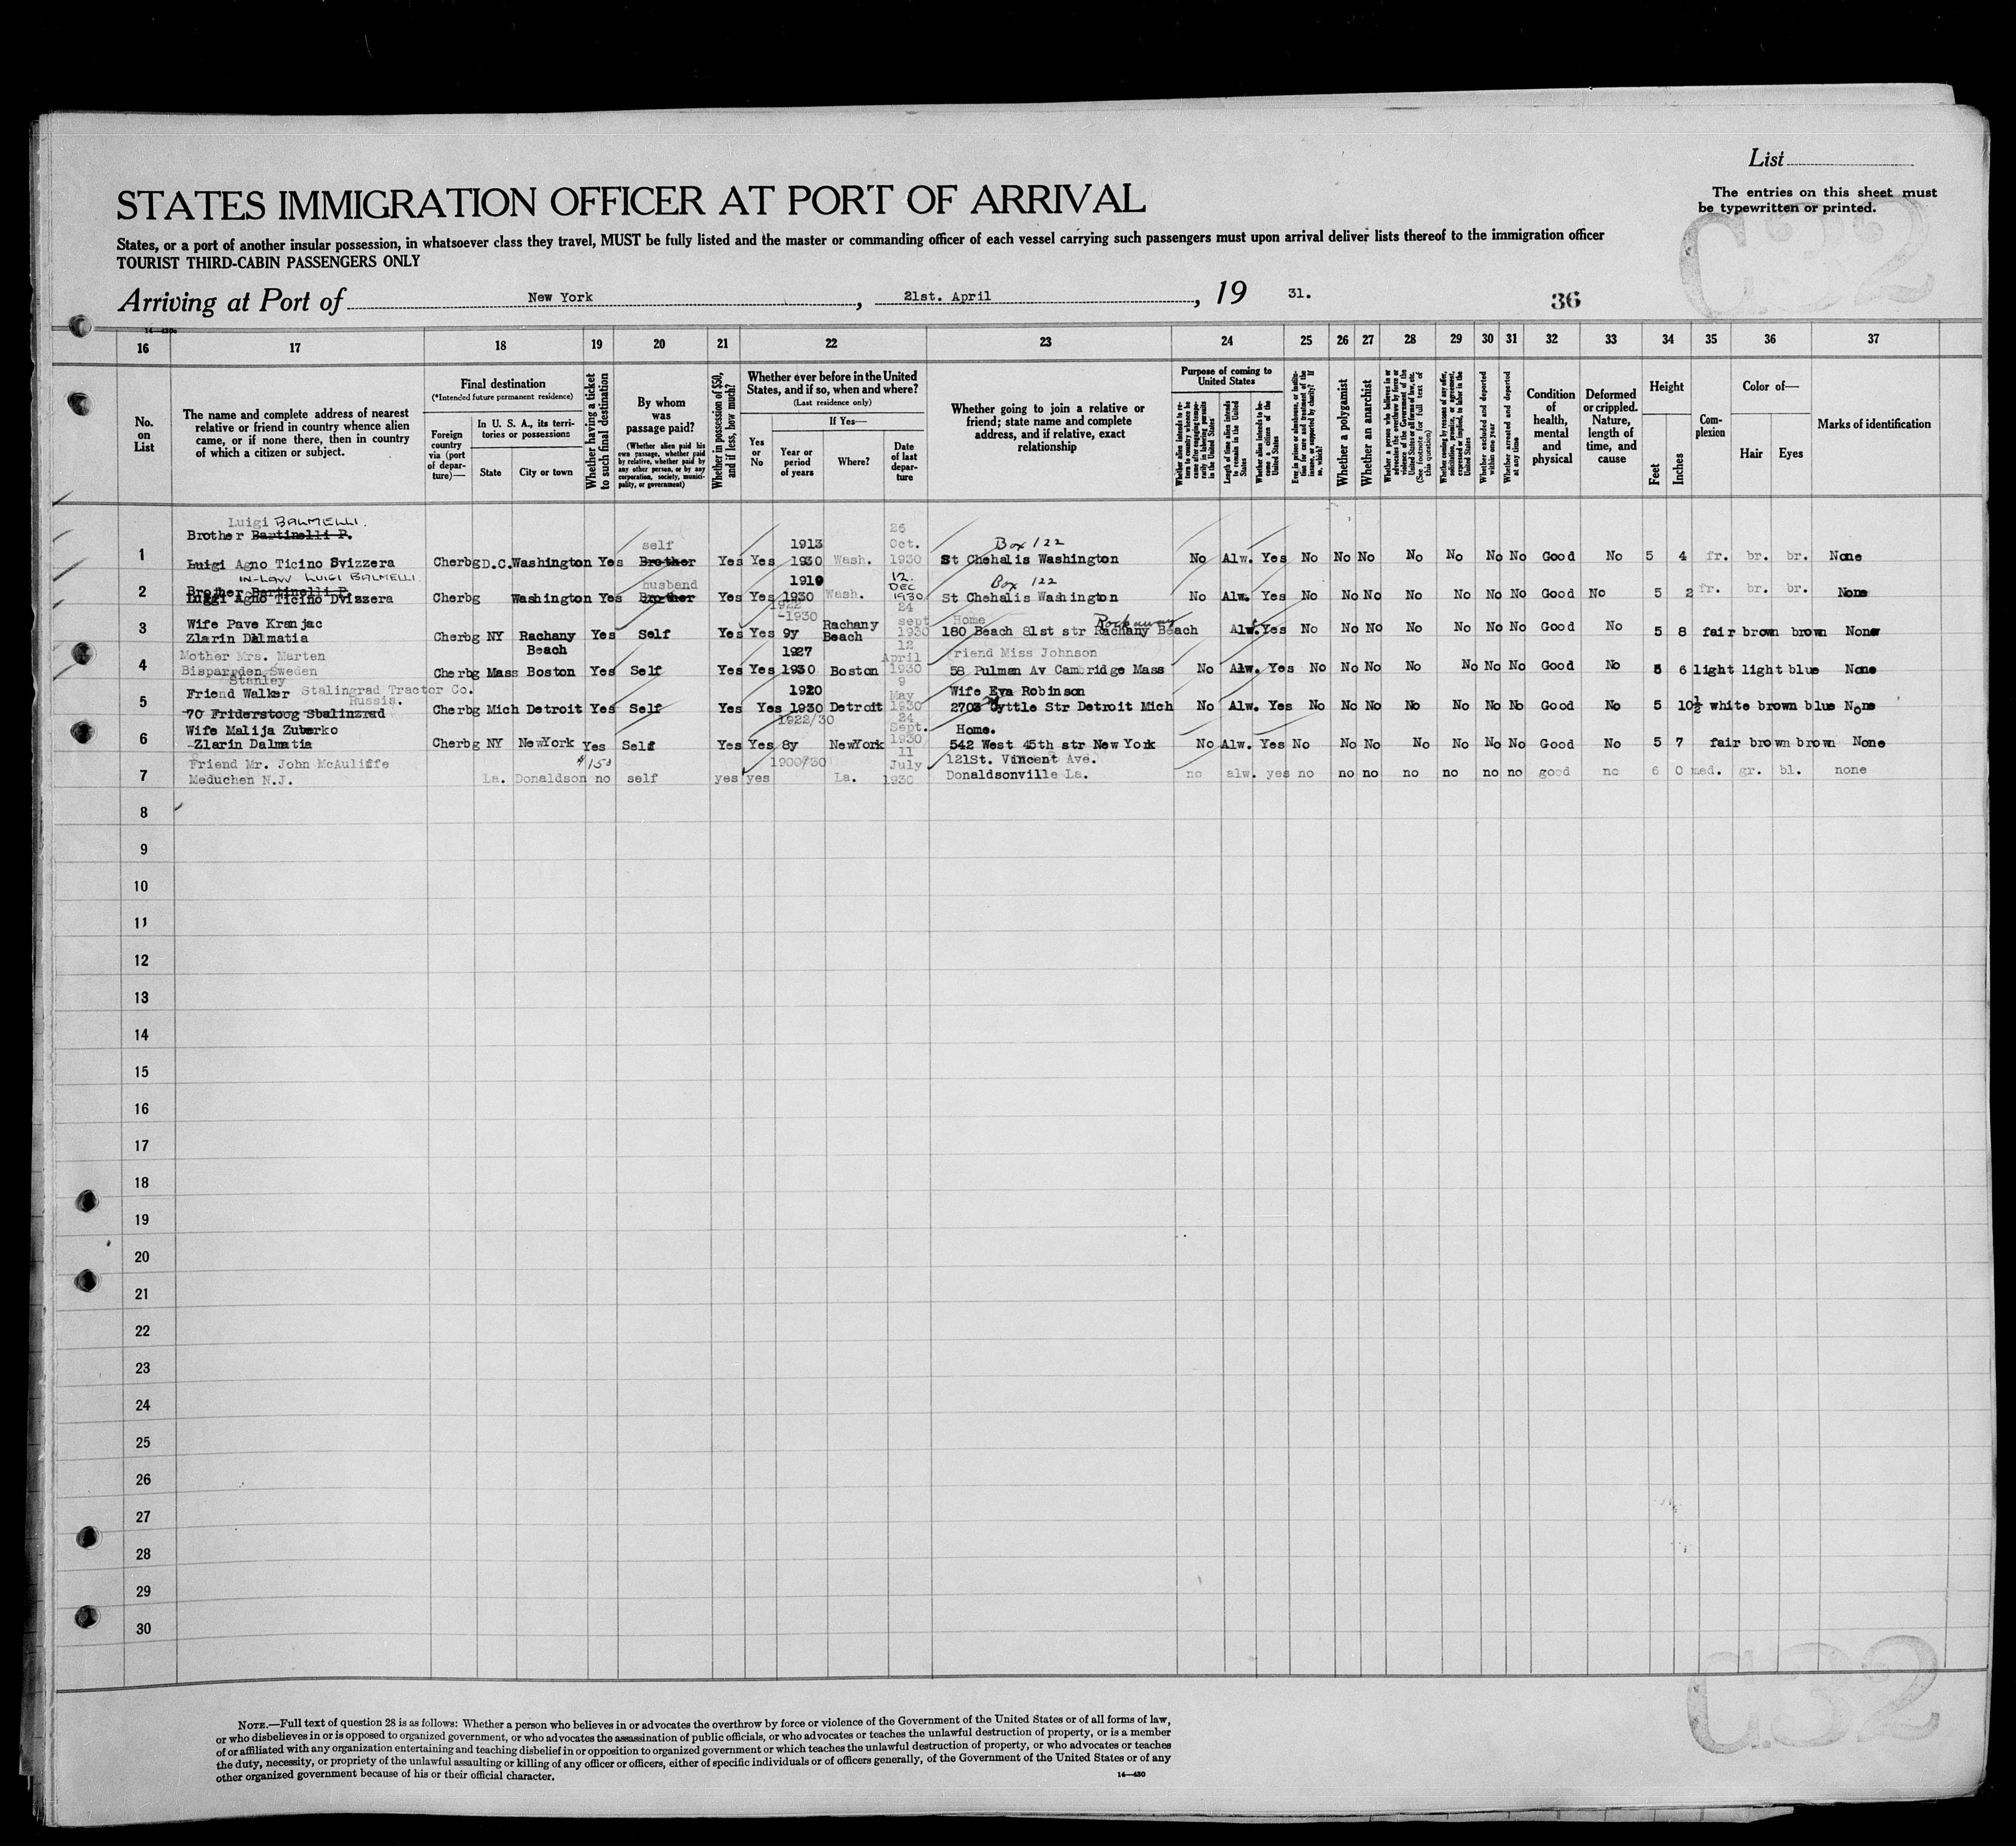 List
The entries on this sheet must
be typewritten or printed.
STATES IMMIGRATION OFFICER AT PORT OF ARRIVAL
States, or a port of another insular possession, in whatsoever class they travel, MUST be fully listed and the master or commanding officer of each vessel carrying such passengers must upon arrival deliver lists thereof to the immigration officer
TOURIST THIRD-CABIN PASSENGERS ONLY
Arriving at Port of New York, 21st. April, 19 31.
36
16 17 18 19 20 21 22 23 24 25 26 27 28 29 30 31 32 33 34 35 36 37
No.
on
List
The name and complete address of nearest
relative or friend in country whence alien
came, or if none there, then in country
of which a citizen or subject.
Final destination
(*Intended future permanent residence)
Foreign
country
via (port
of depar-
ture)—
In U. S. A., its terri-
tories or possessions
State
City or town
Whether having a ticket
to such final destination
By whom
was
passage paid?
(Whether alien paid his
own passage, whether paid
by relative, whether paid by
any other person, or by any
corporation, society, munici-
pality, or government)
Whether in possession of $50,
and if less, how much?
Whether ever before in the United
States, and if so, when and where?
(Last residence only)
Yes
or
No
If Yes—
Year or
period
of years
Where?
Date
of last
depar-
ture
Whether going to join a relative or
friend; state name and complete
address, and if relative, exact
relationship
Purpose of coming to
United States
Length of time alien intends
to remain in the United
States
Whether alien intends to be-
come a citizen of the
United States
Whether a polygamist
Whether an anarchist
Whether excluded and deported
within one year
Whether arrested and deported
at any time
Condition
of
health,
mental
and
physical
Deformed
or crippled.
Nature,
length of
time, and
cause
Height
Feet
Inches
Com-
plexion
Color of—
Hair
Eyes
Marks of identification
Luigi BALMELLI.
Brother Bartinelli P.
self 1913 26 Oct. Box 122
1 Luigi Agno Ticino Svizzera Cherbg D.C. Washington Yes Brother Yes Yes 1930 Wash. 1930 St Chehalis Washington No Alw. Yes No No No No No No No Good No 5 4 fr. br. br. None
IN-LAW LUIGI BALMELLI
Brother Bartinelli P. husband 1910 12. DEC Box 122
2 Luigi Agno Ticino Dvizzera Cherbg Washington Yes Brother Yes Yes 1930 Wash. 1930 St Chehalis Washington No Alw. Yes No No No No No No No Good No 5 2 fr. br. br. None
Wife Pave Kranjac 1922 -1930 24 sept Home Rockaway
3 Zlarin Dalmatia Cherbg NY Rachany Beach Yes Self Yes Yes 9y Rachany Beach 1930 180 Beach 81st str Rachany Beach Alw. Yes No No No No No No No Good No 5 8 fair brown brown None
Mother Mrs. Marten 1927 12 April friend Miss Johnson
4 Bisparsden Sweden Cherbg Mass Boston Yes Self Yes Yes 1930 Boston 1930 58 Pulman Av Cambridge Mass No Alw. Yes No No No No No No No Good No 5 6 light light blue None
Stanley
Friend Walker Stalingrad Tractor Co. 1920 9 May Wife Eva Robinson
Russia.
5 70 Friderstoog Stalinzrad Cherbg Mich Detroit Yes Self Yes Yes 1930 Detroit 1930 2703 Tyttle Str Detroit Mich No Alw. Yes No No No No No No No Good No 5 10½ white brown blue None
Wife Malija Zuberko 1922/30 24 Sept. Home.
6 Zlarin Dalmatia Cherbg NY NewYork Yes Self Yes Yes 8y NewYork 1930 542 West 45th str New York No Alw. Yes No No No No No No No Good No 5 7 fair brown brown None
Friend Mr. John McAuliffe $150 1900/30 11 July 121St. Vincent Ave.
7 Meduchen N.J. La. Donaldson no self yes yes La. 1930 Donaldsonville La. no alw. yes no no no no no no no good no 6 0 med. gr. bl. none
8
9
10
11
12
13
14
15
16
17
18
19
20
21
22
23
24
25
26
27
28
29
30
NOTE.—Full text of question 28 is as follows: Whether a person who believes in or advocates the overthrow by force or violence of the Government of the United States or of all forms of law,
or who disbelieves in or is opposed to organized government, or who advocates the assassination of public officials, or who advocates or teaches the unlawful destruction of property, or is a member
of or affiliated with any organization entertaining and teaching disbelief in or opposition to organized government or which teaches the unlawful destruction of property, or who advocates or teaches
the duty, necessity, or propriety of the unlawful assaulting or killing of any officer or officers, either of specific individuals or of officers generally, of the Government of the United States or of any
other organized government because of his or their official character.
14—430